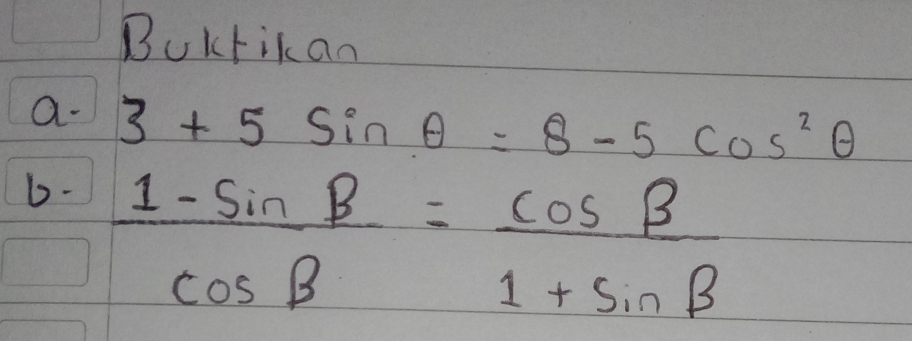 Buktikan
a. 3 + 5 Sin θ = 8 - 5 Cos² θ
b. 1 - Sin β = cos β
cos β 1 + Sin β